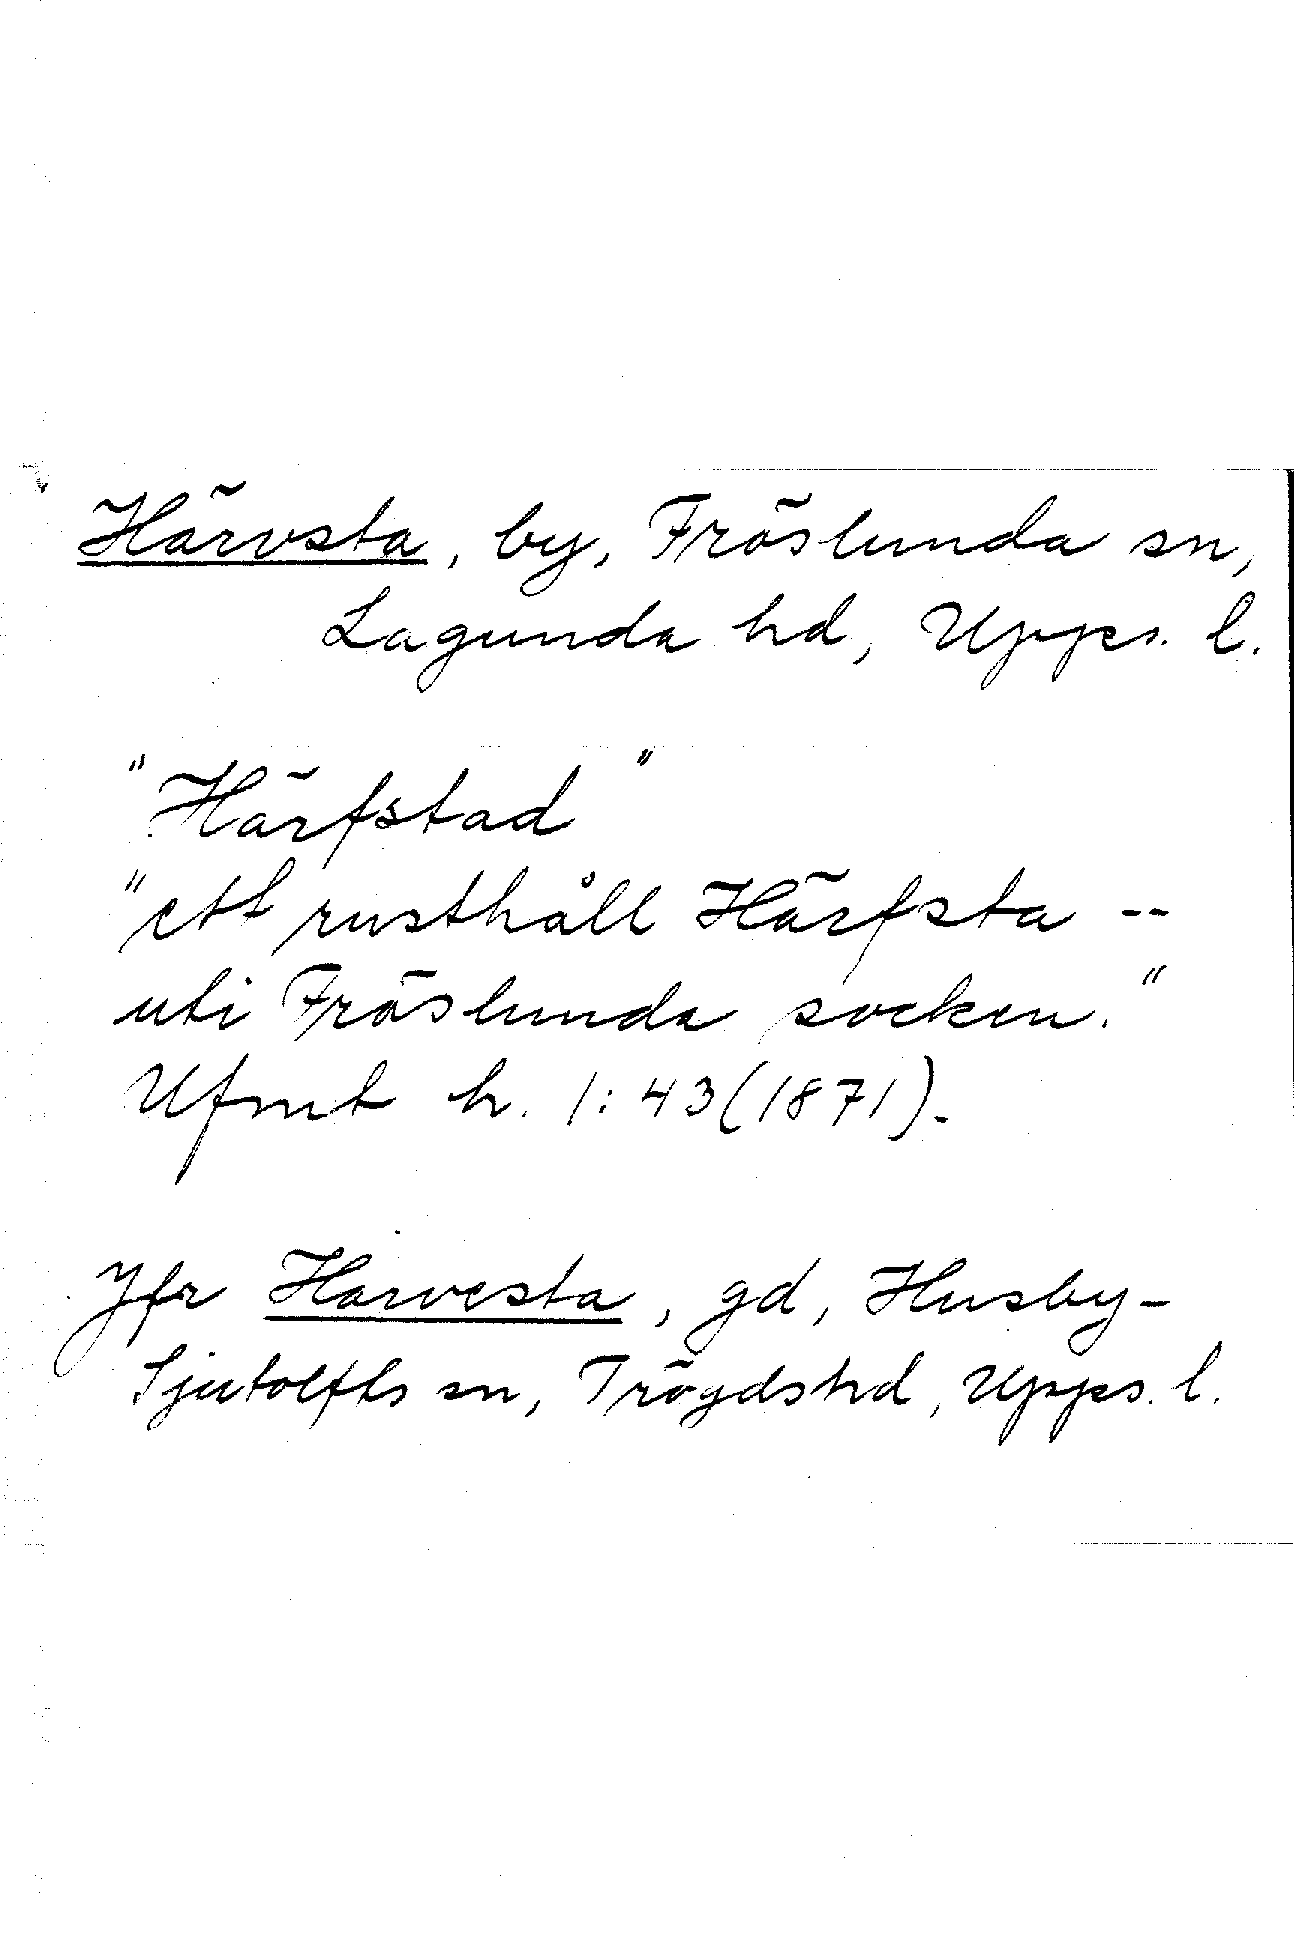 Härvsta, by, Fröslunda sn,
Lagunda hd, Upps. l.
"Härfstad"
"ett rusthåll Härfsta --
uti Fröslunda socken."
Ufmt h. 1:43(1871).
Jfr Harvesta, gd, Husby-
Sjutolfts sn, Trögds hd, Upps. l.